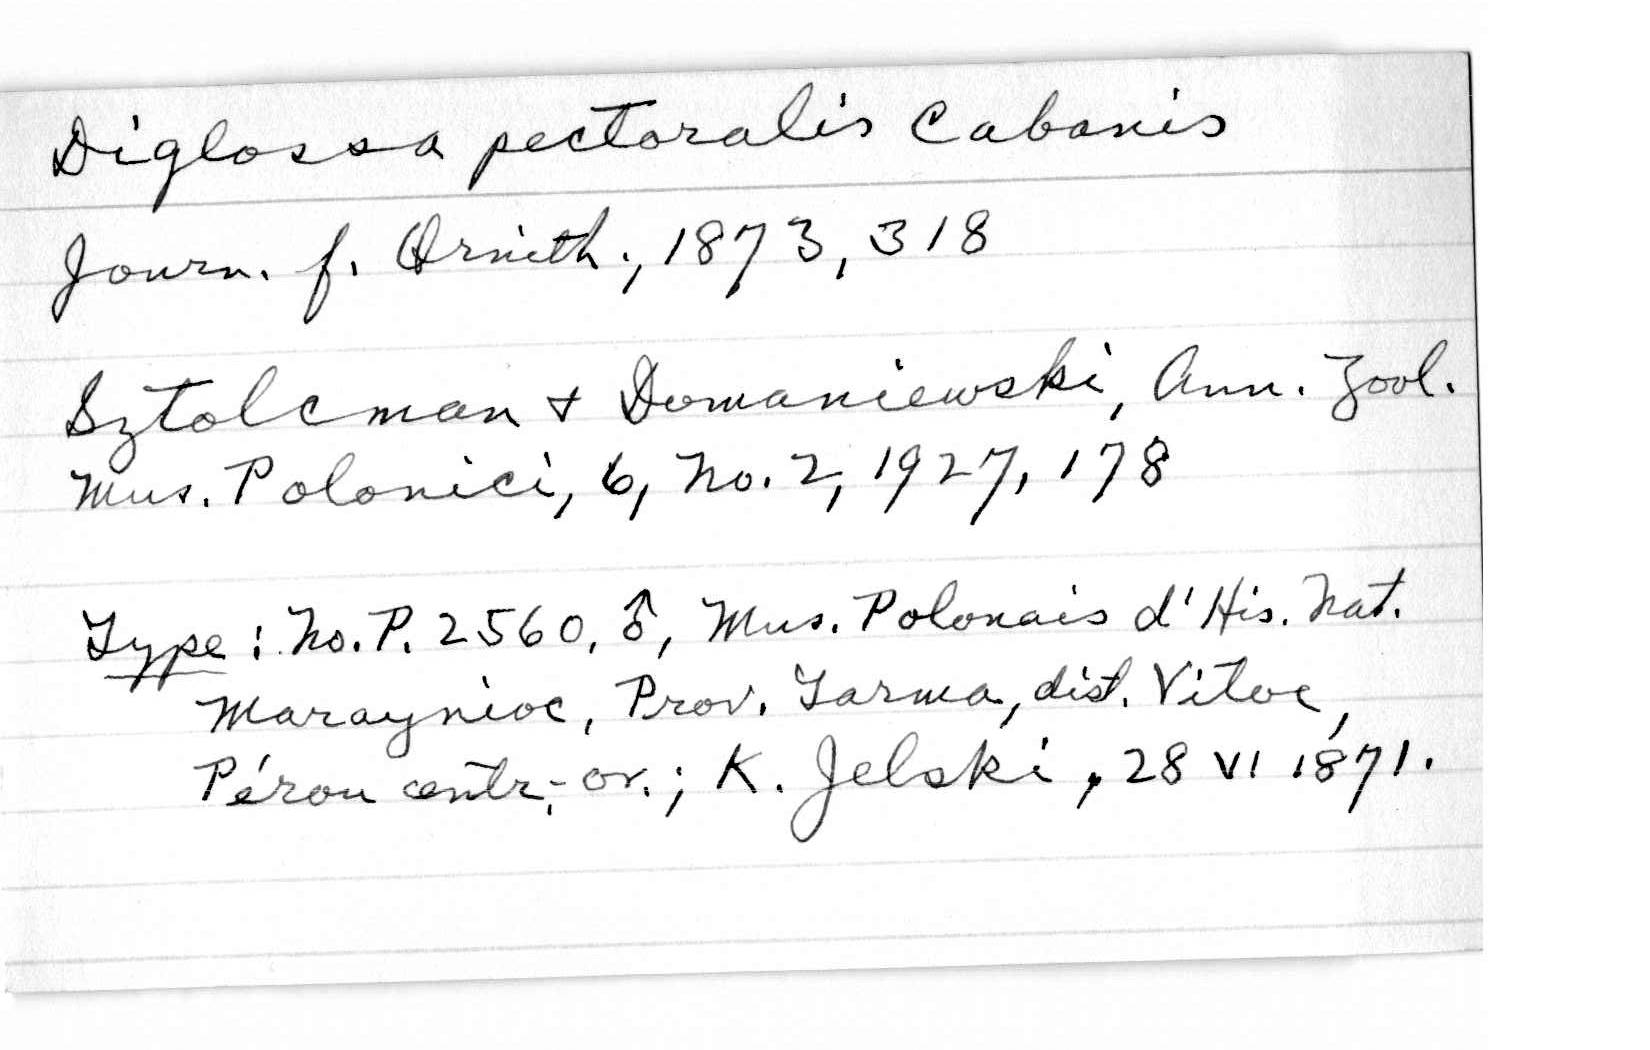 Diglossa pectoralis Cabanis
Journ. f. Ornith., 1873, 318
Sztolcman & Domaniewski, Ann. Zool.
Mus. Polonici, 6, No. 2, 1927, 178
Type: No. P. 2560, ♂, Mus. Polonais d'His. Nat.
Maraynioc, Prov. Tarma, dist. Vitoc,
Pérou centr.-or.; K. Jelski, 28 VI 1871.